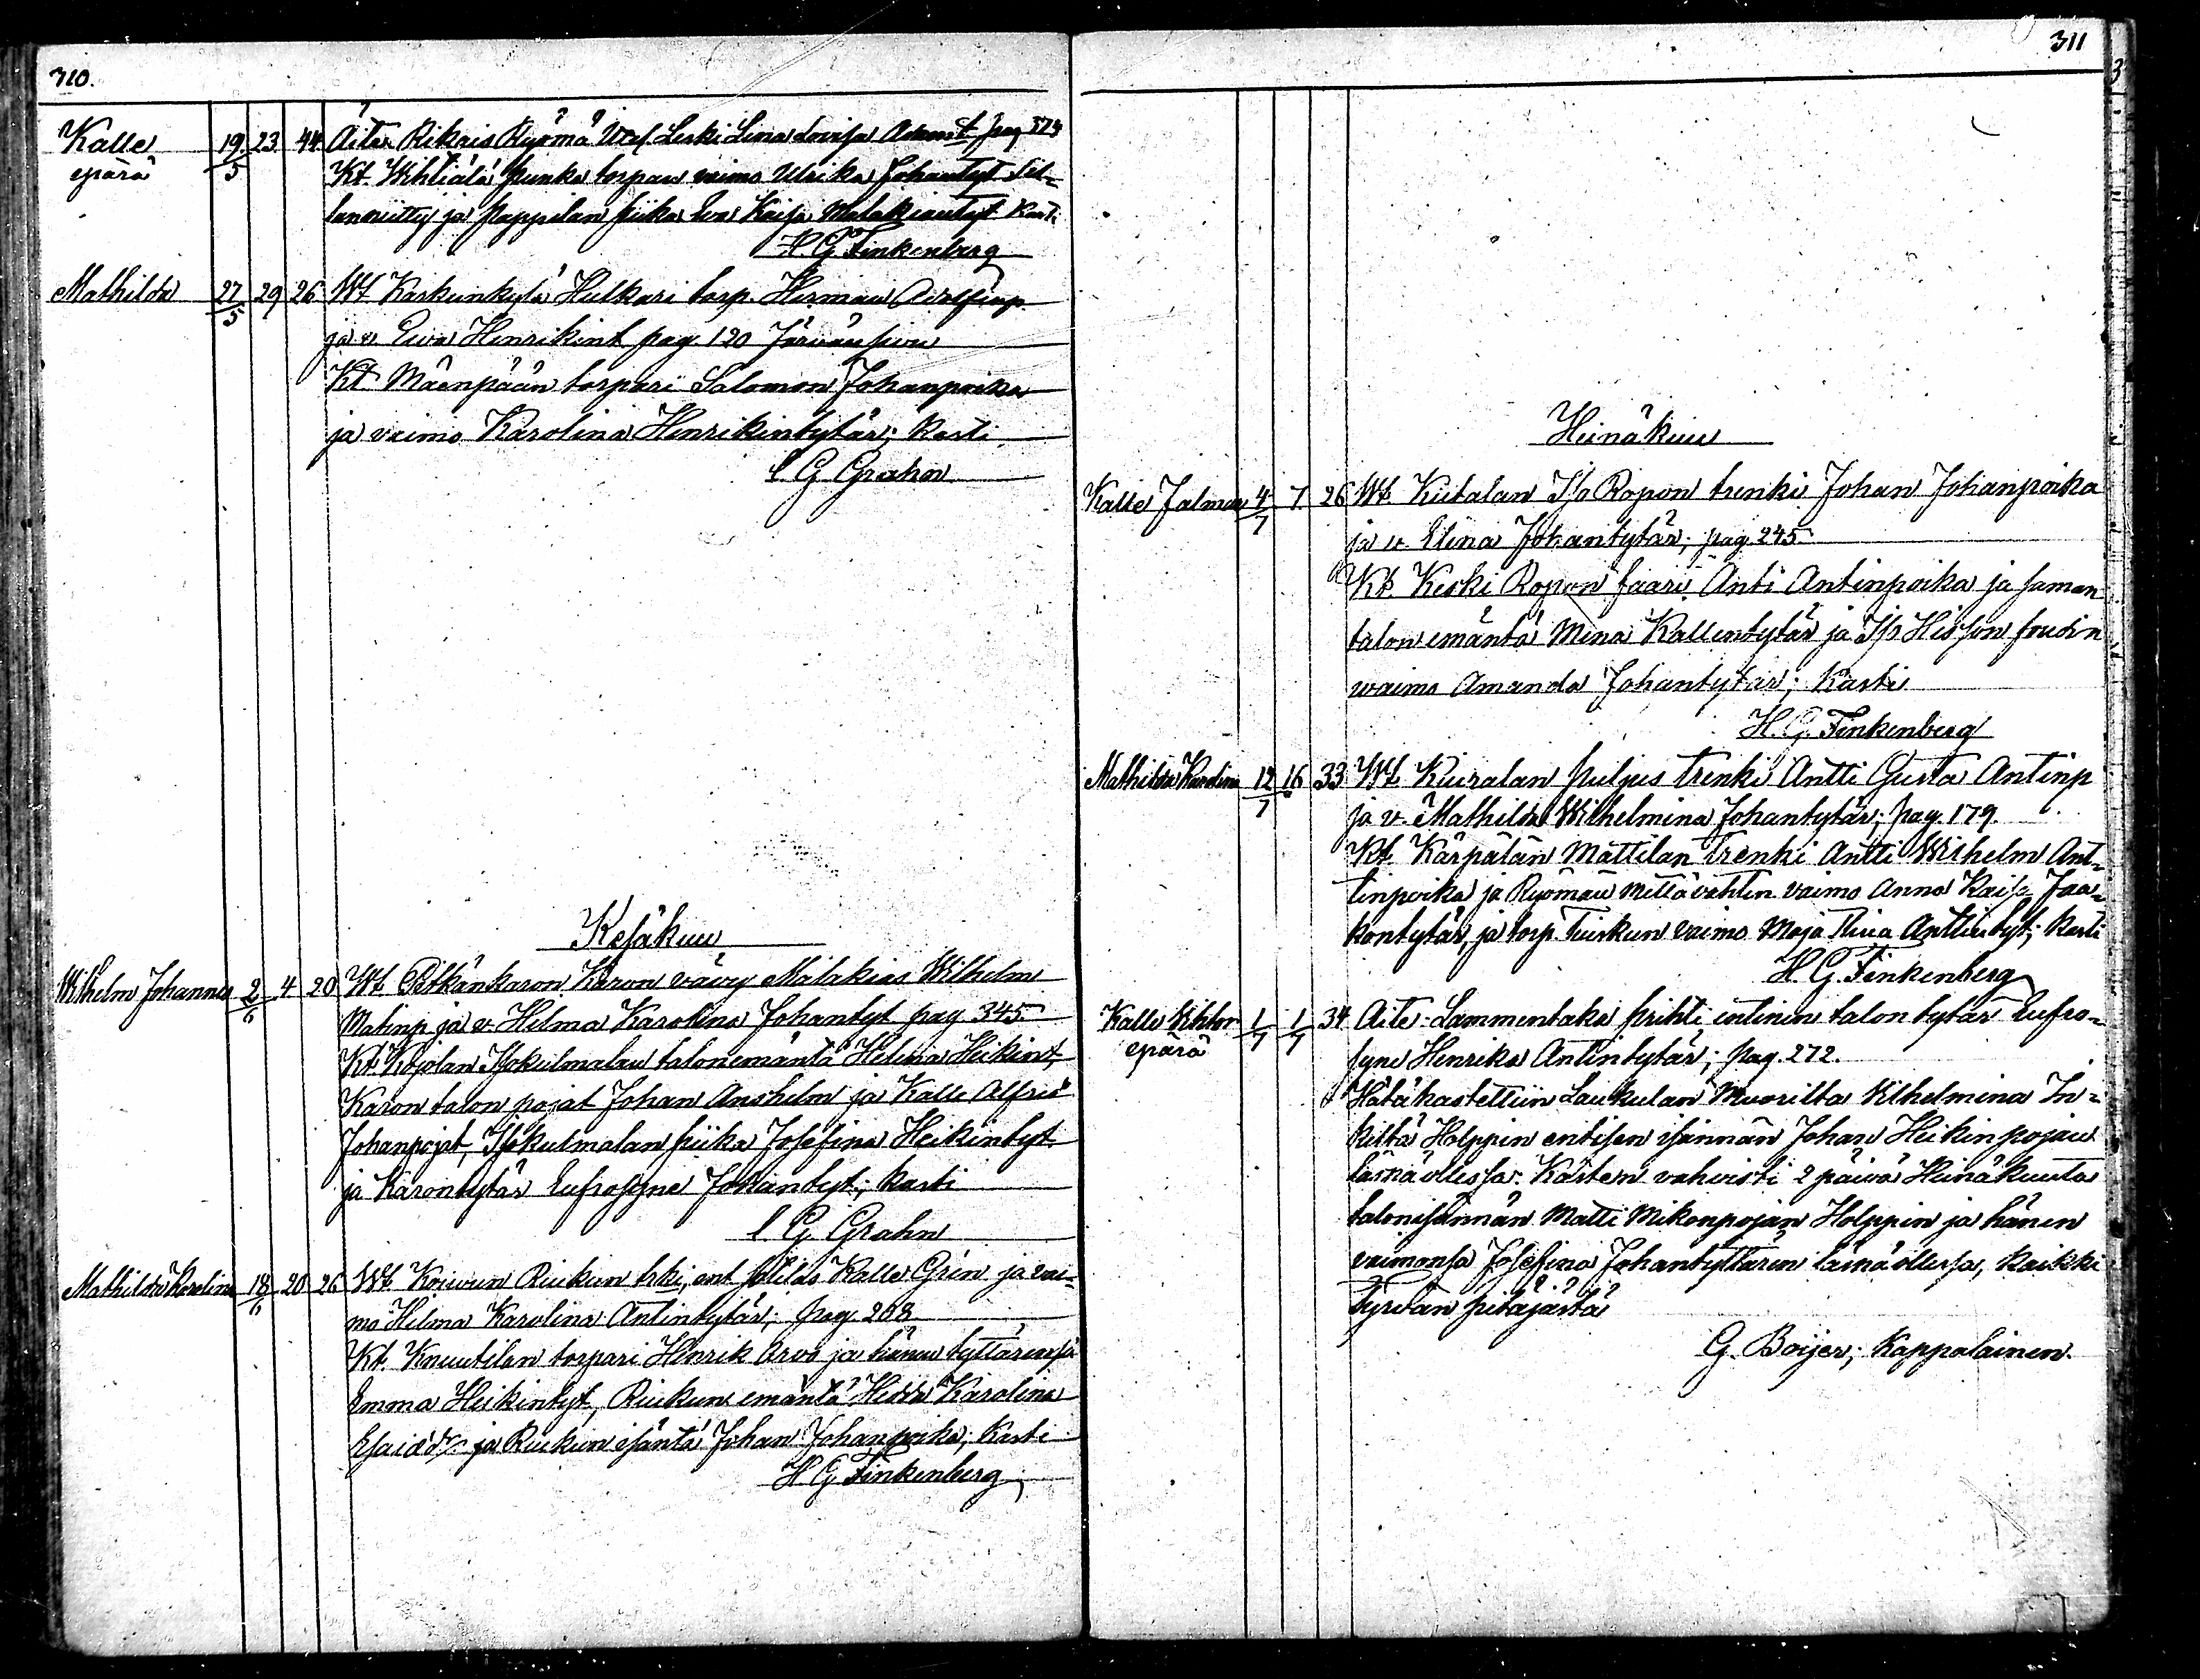 310.
Kalle 19/5 23 44 Äite Rikais Ryömä Leski Lena Lovisa pag 324
epärä Kt. Wihtiälä Punka torpan vaimo Ulrika Johantyt Sil=
lanniitty ja Pappilan piika Eva Kaisa Malakiantyt Kasti
H G Finkenberg
Mathilda 27/5 29 26 Wt Karkunkylä Hulkari torp. Herman Adolfinp.
ja v. Eva Henrikint pag. 120 Järvän sivu
Kt Mäenpään torpari Salomon Johanpoika
ja vaimo Karolina Henrikintytär; Kasti
C. G. Grahn
Kesäkuu
Wilhelm Johannes 2/6 4 20 Wt. Pitkänkaron Karon vävy Malakias Wilhelm
Matinp ja v. Helma Karolina Johantyt pag 345
Kt. Kojolan Isokulmalan talonemäntä Helena Heikint,
Karon talon pojat Johan Anshelm ja Kalle Alfred
Johanpojat, Isokulmalan piika Josefina Heikintyt
ja Karontytär Eufrosyne Johantyt; Kasti
C G. Grahn
Mathilda Karolina 18/6 20 26 Wt Koivun Riukun trki, ent sotilas Kalle Grén ja vai=
mo Helma Karolina Antintytär; pag. 208
Kt. Knuutilan torpari Henrik Arvo ja hänen tyttärensä
Emma Heikintyt, Riukun emäntä Hedda Karolina
Esaidr ja Riukun isäntä Johan Johanpoika; Kasti
H G Finkenberg
311
Heinäkuu
Kalle Jalmar 4/7 7 26 Wt. Kiitalan I/o Ropon trenki Johan Johanpoika
ja v. Elina Johantytär; pag. 245
Kt. Keski Ropon faari Anti Antinpoika ja saman
talon emäntä Mina Kallentytär ja I/o Hisson
waimo Amanda Johantytär; Kasti
H. G. Finkenberg
Mathilda Karolina 12/7 16 33 Wt. Kiuralan puljus Trenki Antti Gusta Antinp
ja v. Mathilda Wilhelmina Johantytär; pag. 179.
Kt. Kärpälän Mattilan Trenki Antti Wilhelm Ant=
tinpoika ja Ryömän mettävahtin vaimo Anna Kaisa Jaa=
kontytär, ja torp. Tuiskun vaimo Maja Tiina Anttintyt; Kasti
H. G. Finkenberg
Kalle Wihtor 1/7 1/7 34 Äite: Lammentaka Prihti, entinen talontytär Eufro=
epärä syne Henrika Antintytär; pag. 272.
Hätäkastettiin Laukulan Muorilta Wilhelmina In=
kiltä Holppin entisen isännän Johan Heikinpojan
läsnä ollessa. Kasten vahvisti 2 päivä Heinäkuuta
talonisännän Matti Mikonpojan Holppin ja hänen
vaimonsa Josefina Johantyttären läsnäollessa, Kaikki
Tyrvän pitäjästä
G. Boijer; Kappalainen.